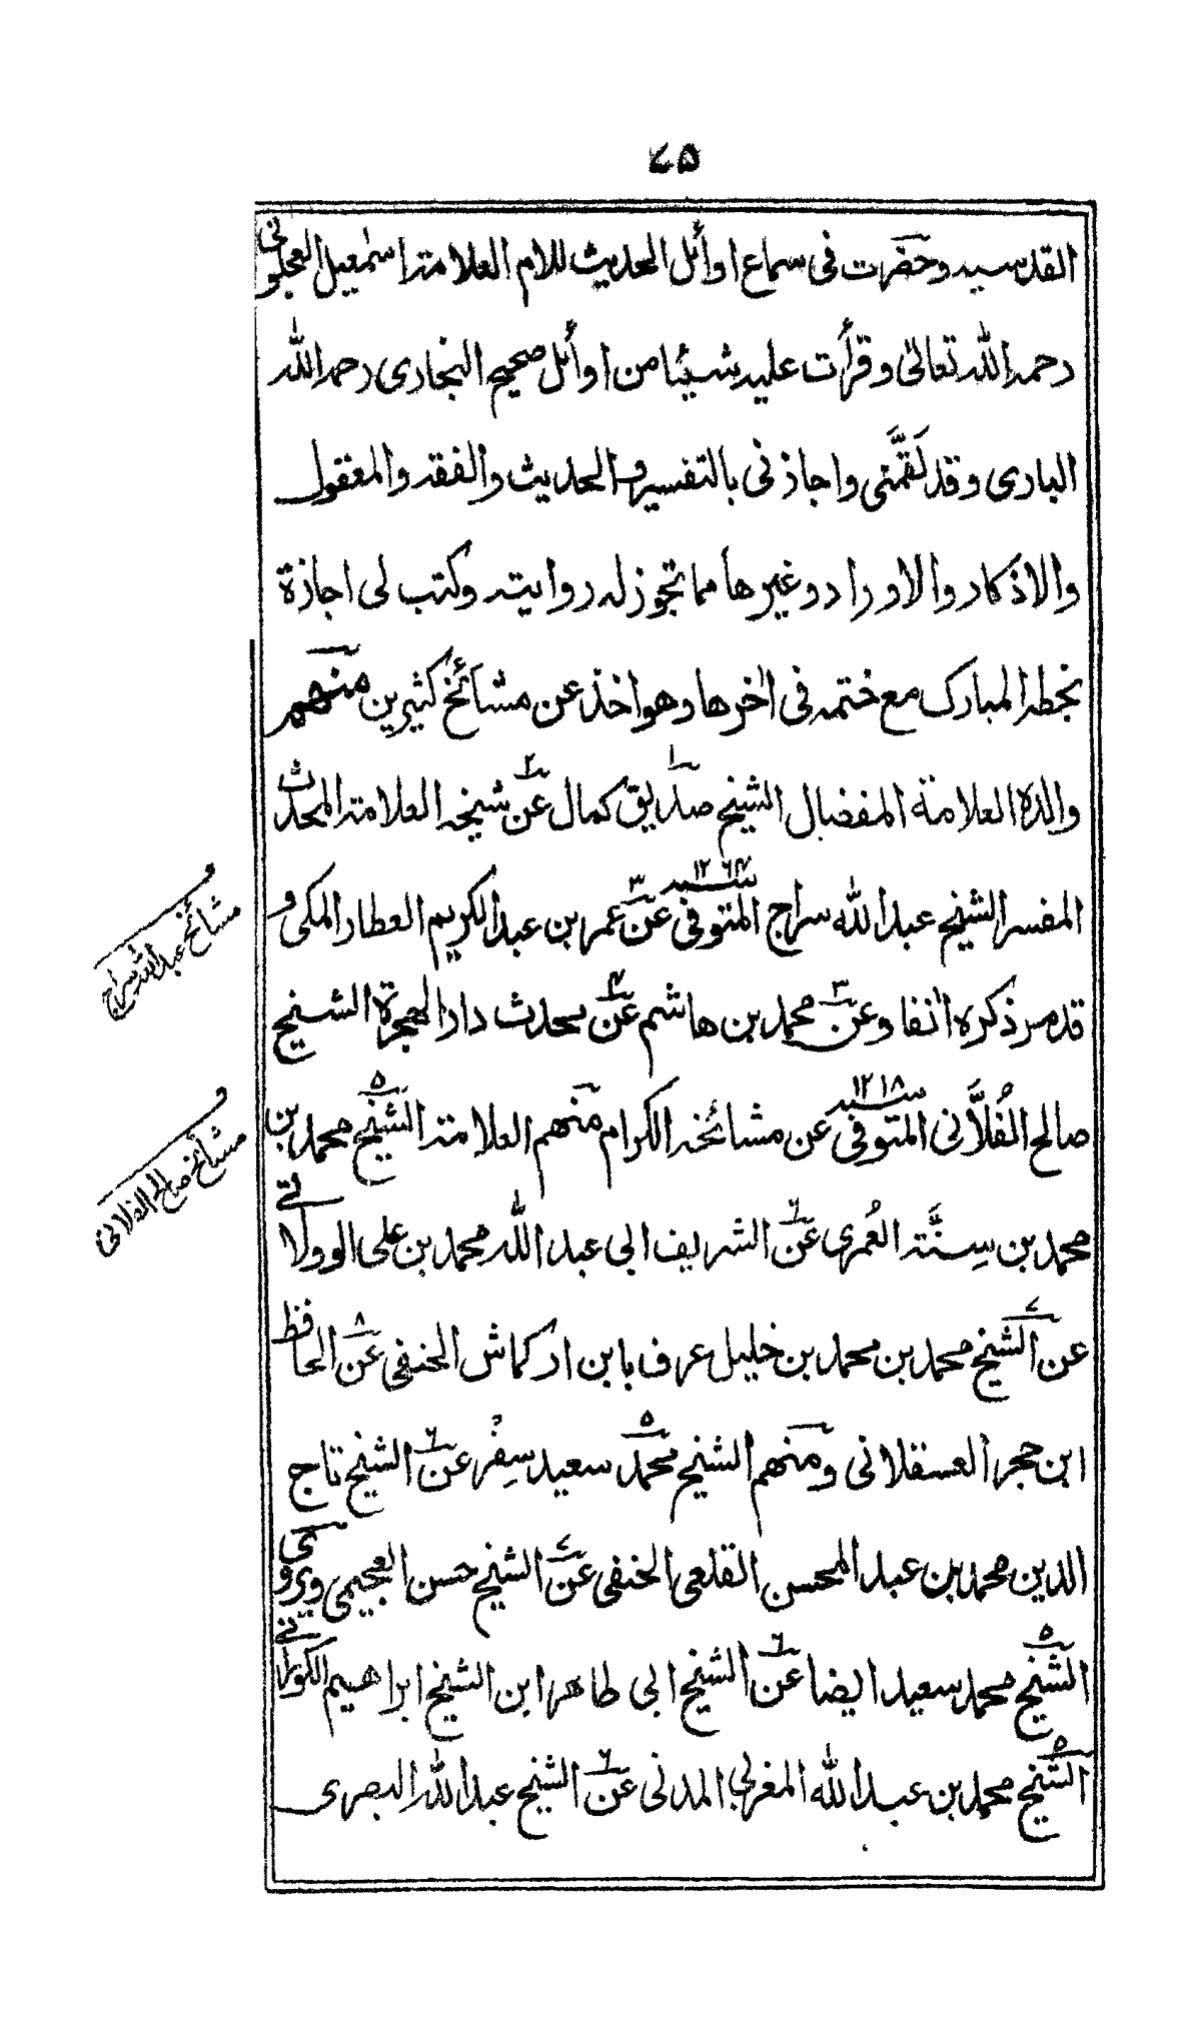 ٤٥
القدسيه وحضرت فى سماع اوائل الحديث للام العلامة اسمٰعيل العجلونى
رحمه الله تعالىٰ وقرأت عليه شيئا من اوائل صحيح البخارى رحمه الله
البارى وقد لقَّمَنى واجازنى بالتفسير والحديث والفقه والمعقول
والاذكار والاوراد وغيرها مما تجوز له روايته وكتب لى اجازة
بخطه المبارك مع ختمه فى اٰخرها وهو اخذ عن مشائخ كثيرين منهم
والده العلامة المفضال الشيخ ١ صديق كمال عن ٢ شيخه العلامة المحدث
المفسر الشيخ عبد الله سراج المتوفى سنه ١٢٦٤ عن ٣ عمر ابن عبد الكريم العطار المكى و
قد مر ذكره اٰنفا وعن ٣ محمد بن هاشم عن ٤ محدث دار الهجرة الشيخ
صالح الفُلاَّنى المتوفى سنه ١٢١٨ عن مشائخه الكرام منهم العلامة الشيخ ٥ محمد بن
محمد بن سِنَّة العُمرى عن ٦ الشريف ابى عبد الله محمد بن على الوولاتى
عن الشيخ ٧ محمد بن محمد بن خليل عرف بابن اركماش الحنفى عن ٨ الحافظ
ابن حجر العسقلانى ومنهم الشيخ محمد ٥ سعيد سِفْر عن ٦ الشيخ تاج
الدين محمد بن عبد المحسن القلعى الحنفى عن ٧ الشيخ حسن العجيمى ويروى
الشيخ ٥ محمد سعيد ايضا عن ٦ الشيخ ابى طاهر ابن الشيخ ابراهيم الكورانى
الشيخ ٥ محمد بن عبد الله المغربى المدنى عن ٦ الشيخ عبد الله البصرى
مشائخ عبد الله سراج
مشائخ صالح الفلانى